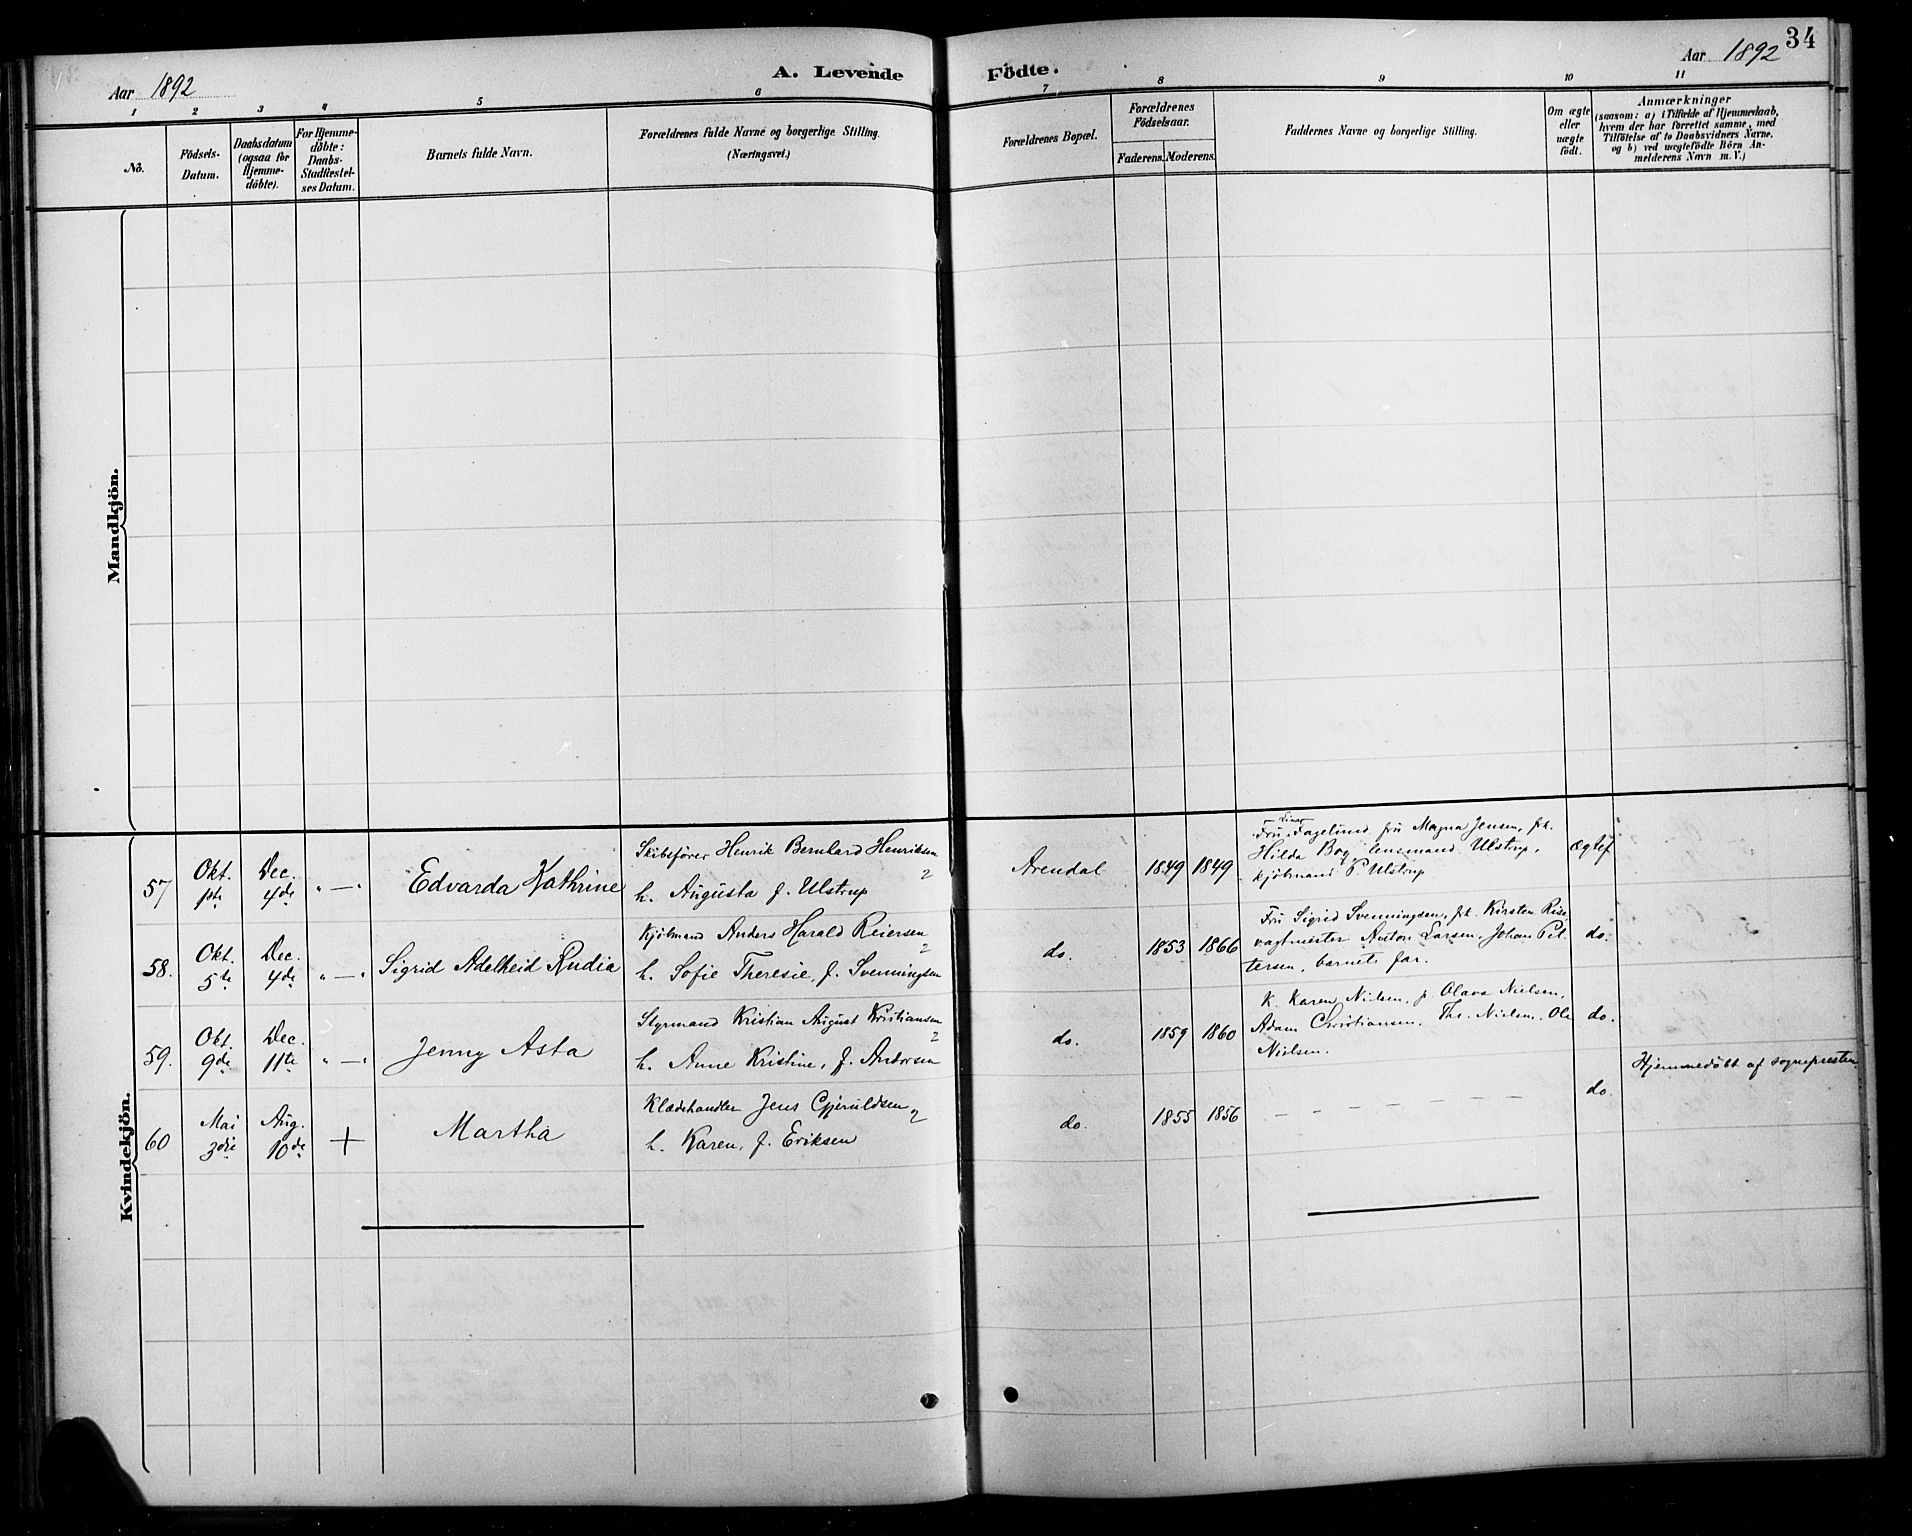 Aar 1892
A. Levende Födte.
Aar 1892
34
1 2 3 4 5 6 7 8 9 10 11
No.
Födsels-
Datum.
Daabsdatum
(ogsaa for
Hjemme-
döbte).
For Hjemme-
döbte:
Daabs-
Stadfæstel-
ses Datum.
Barnets fulde Navn.
Forældrenes fulde Navne og borgerlige Stilling.
(Næringsvei.)
Forældrenes Bopæl.
Forældrenes
Födselsaar.
Faderens. Moderens.
Faddernes Navne og borgerlige Stilling.
Om ægte
eller
uægte
födt.
Anmærkninger
(saasom: a) i Tilfælde af Hjemmedaab,
hvem der har forrettet samme, med
Tilföielse af to Daabsvidners Navne,
og b) ved uægtefödte Börn An-
melderens Navn m. V.)
Mandkjön.
Kvindekjön.
57
Okt.
1ste
Dec.
4de
" — "
Edvarda Kathrine
Skibsfører Henrik Bernhard Henriksen
h. Augusta f. Ulstrup
Arendal
1849
1849
Fru Fagelund, fru Magna Jensen, frk.
Hilda Boy, lensmand Ulstrup,
kjøbmand P. Ulstrup
Ægtef
58.
Okt.
5te
Dec.
4de
" — "
Sigrid Adelheid Rudia
Kjøbmand Anders Harald Reiersen
h. Sofie Theresie, f. Svenningsen
do.
1853
1866
Fru Sigrid Svenningsen, frk. Kirsten Rise,
vagtmester Anton Larsen, Johan Pet-
tersen, barnets far.
do.
59.
Okt.
9de
Dec.
11te
" — "
Jenny Asta
Styrmand Kristian August Kristiansen
h. Anne Kristine, f. Andersen
do.
1859
1860
K. Karen Nielsen, p. Olava Nielsen,
Adam Christiansen, Ths. Nielsen, Ole
Nielsen.
do.
60
Mai
3die
Aug.
10de
+
Martha
Klædehandler Jens Gjeruldsen
h. Karen, f. Eriksen
do.
1855
1856
— — — — — — —
do.
Hjemmedøbt af sognepresten